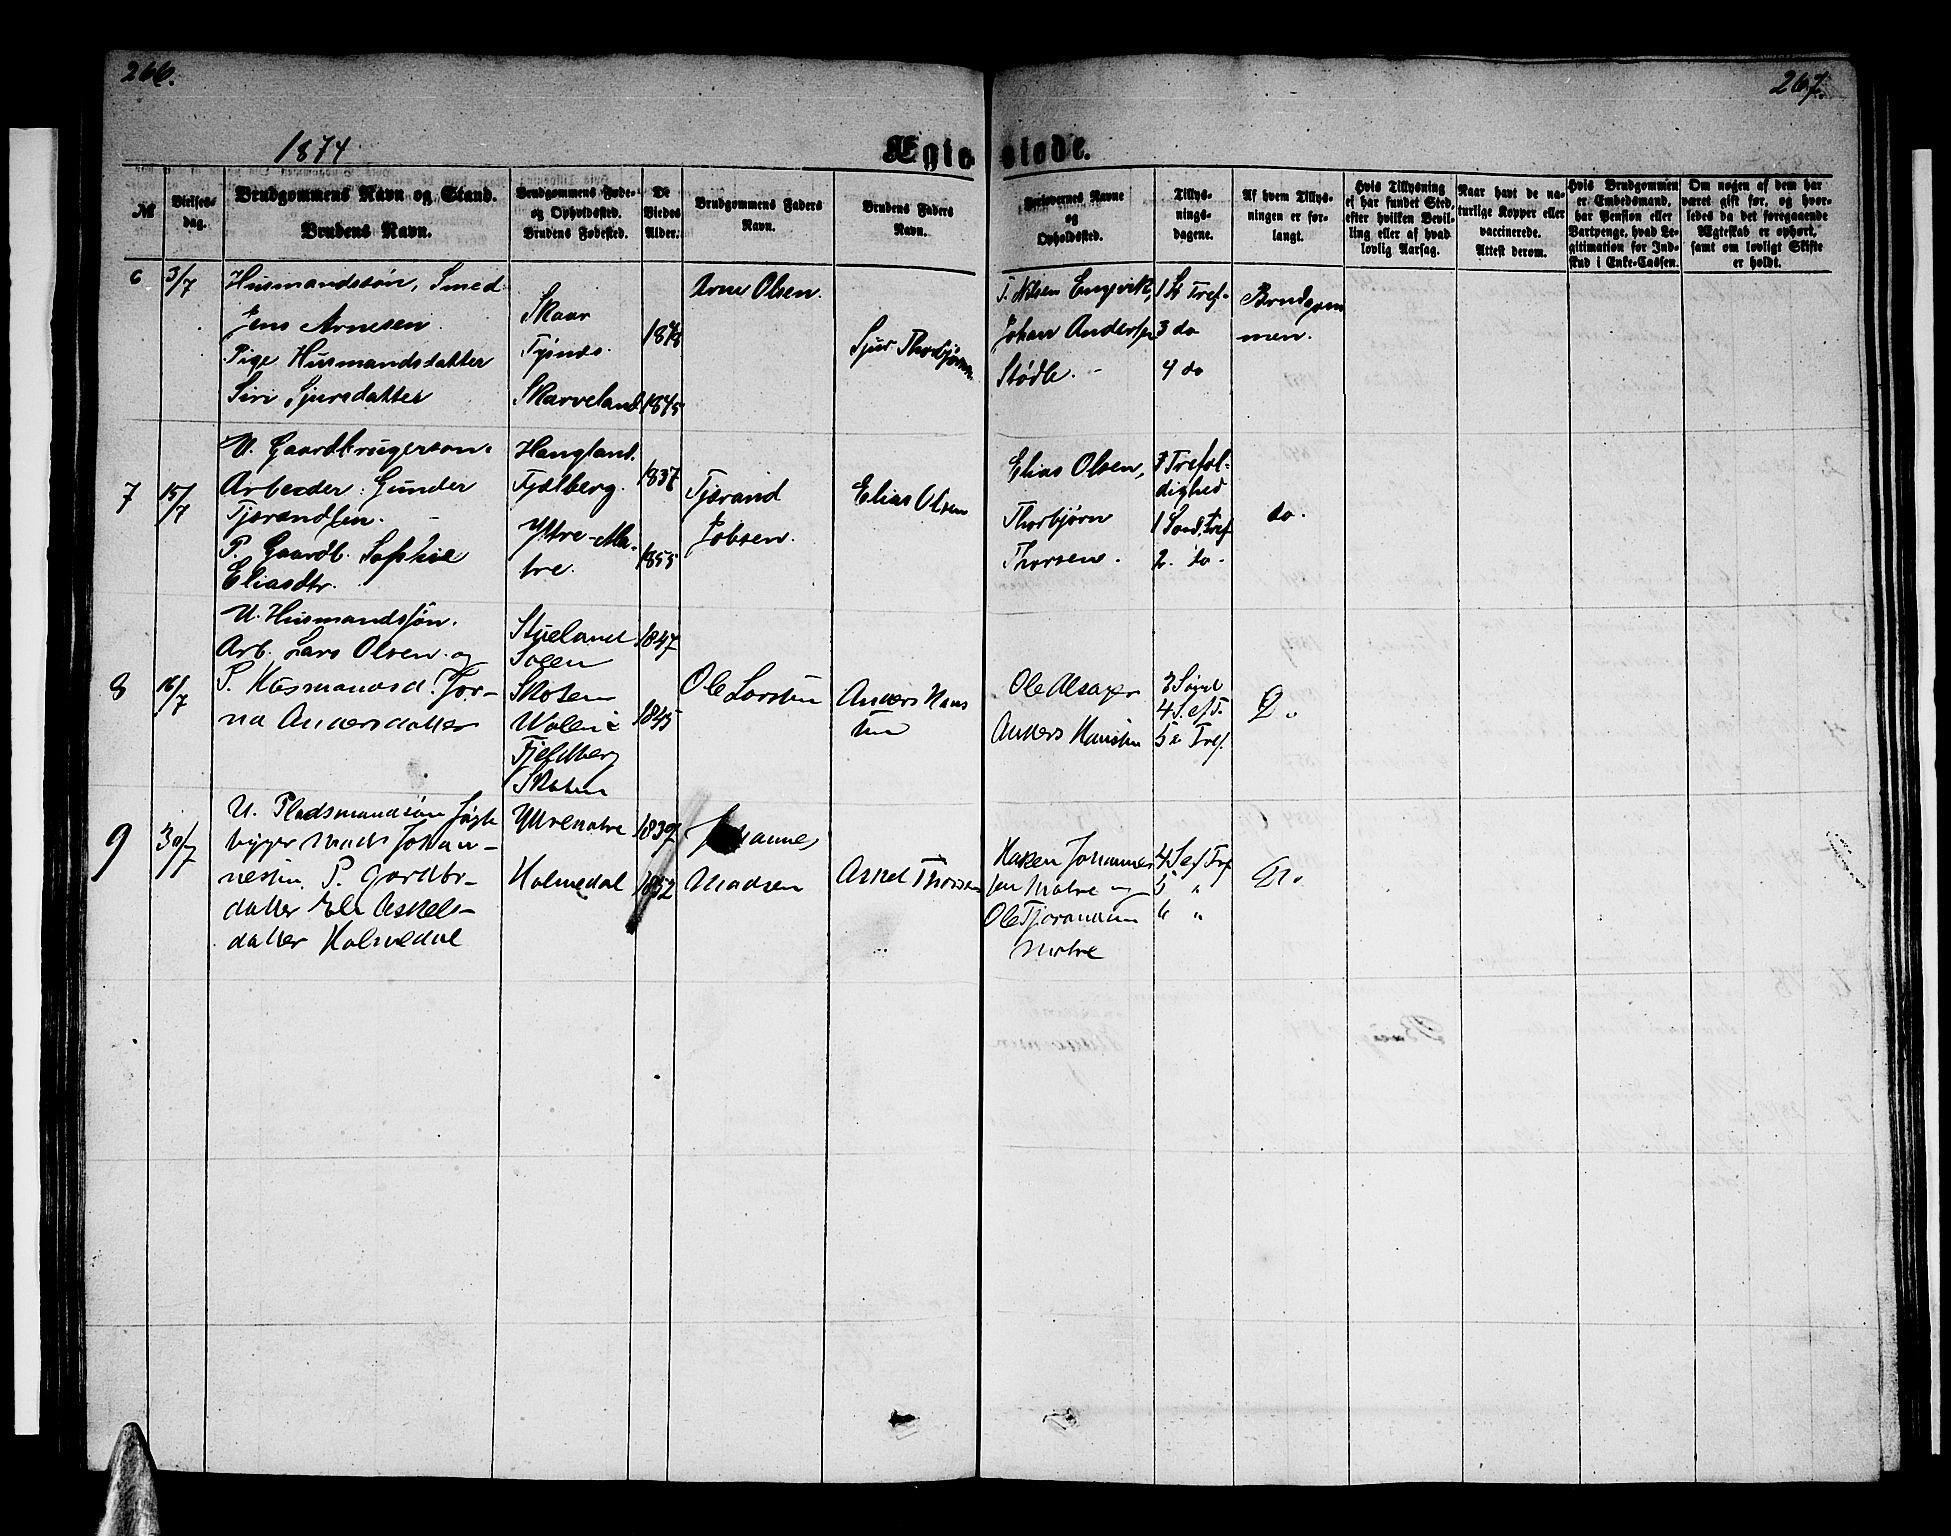 266.
267.
1874
Ægte-
stode.
№
Vielses-
dag.
Brudgommens Navn og Stand.
Brudens Navn.
Brudgommens Føde-
og Opholdssted.
Brudens Fødested.
De
Viedes
Alder.
Brudgommens Faders
Navn.
Brudens Faders
Navn.
Forlovernes Navne
og
Opholdssted.
Tillys-
nings-
dagene.
Af hvem Tillys-
ningen er for-
langt.
Hvis Tillysning
ei har fundet Sted,
efter hvilken Bevil-
ling eller af hvad
lovlig Aarsag.
Naar havt de na-
turlige Kopper eller
vaccinerede.
Attest derom.
Hvis Brudgommen
er Embedsmand,
har Pension eller
Vartpenge, hvad Le-
gitimation for Ind-
skud i Enke-Cassen.
Om nogen af dem har
været gift før, og hvor-
ledes da det foregaaende
Ægteskab er ophørt,
samt om lovligt Skifte
er holdt.
6
3/7
Husmandssøn, Smed
Jens Arnesen
Pige Husmandsdatter
Siri Sjursdatter
Skaar
Tysnes
Skarveland
1845
Arne Olsen.
Sjur Thorbjørns
T. Nilsen Engevik,
Johan Andersen
Stødle.
1 S. Tref.
3 do
4 do
Brudgom
men.
7
15/7
U. Gaardbrugerson.
Arbeider: Gunder
Tjerandsen.
P. Gaardb. Sophie
Eliasdtr.
Haugland.
Fjelberg.
Ytre-Ma-
tre.
1837
1855
Tjerand
Jobsen.
Elias Olsen
Elias Olsen,
Thorbjørn
Thorsen.
Trefol-
dighed
1 Sønd. Tref
2. do.
do.
8
16/7
U. Husmandssøn.
Arb. Lars Olsen og
P. Husmandsd. Jor-
na Andersdatter
Stueland
Skoten
Fjeldberg
Skoten
1847
1845
Ole Larsen
Anders Hans
sen
Ole Alsager
Anders Hansen
3 Sønd
4 S. ef T.
5 " Tref.
Do.
9
30/7
U. Pladsmandsøn Jagt
bygger Mads Johan-
nesen P. Gardbr-
datter Eli Askels-
datter Holmedal
Ytrematre
Holmedal
1839
1852
Johannes
Madsen
Askel Thorsen
Haken Johannes
sen Matre og
Ole Tjerandsen
Matre
4 S. ef Tref
5 "
6 "
Do.